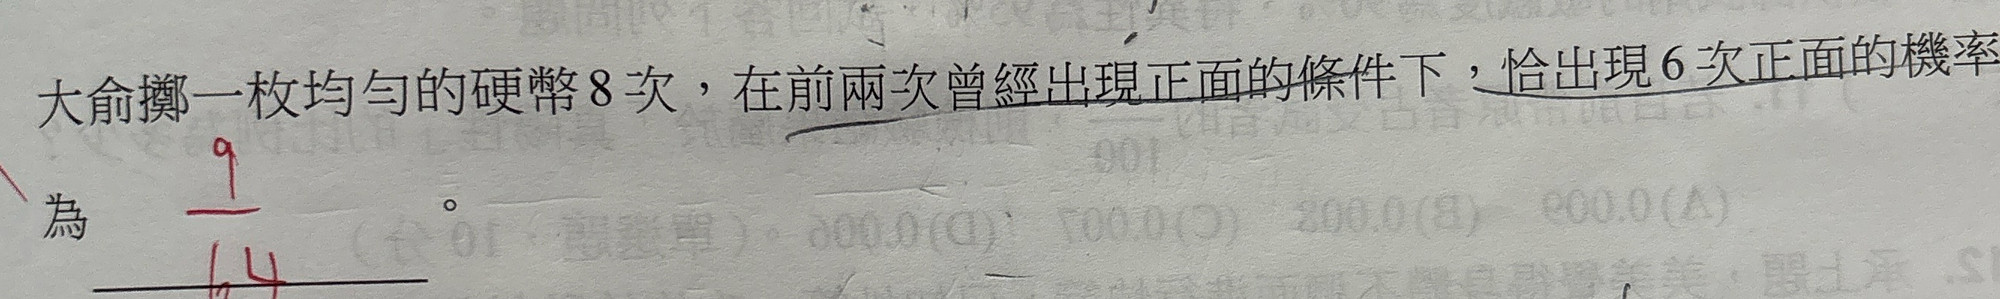 大俞擲一枚均勻的硬幣8次，在前兩次曾經出現正面的條件下，恰出現6次正面的機率
為 9/64 。